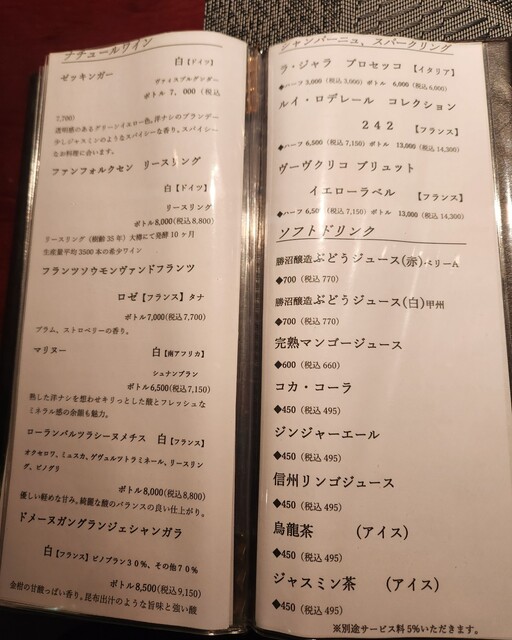 ナチュールワイン
ゼッキンガー 白【ドイツ】
ヴァイスブルグンダー
ボトル 7,000（税込
7,700）
透明感のあるグリーンイエロー色、洋ナシのブランデー
少しジャスミンのようなスパイシーな香り。スパイシー
なお料理に合います。
ファンフォルクセン リースリング
白【ドイツ】
リースリング
ボトル8,000(税込8,800)
リースリング（樹齢 35 年）大樽にて発酵 10 ヶ月
生産量平均 3500 本の希少ワイン
フランツソウモンヴァンドフランツ
ロゼ【フランス】タナ
ボトル7,000(税込7,700)
プラム、ストロベリーの香り。
マリヌー 白【南アフリカ】
シュナンブラン
ボトル6,500(税込7,150)
熟した洋ナシを想わせキリっとした酸とフレッシュな
ミネラル感の余韻も魅力。
ローランバルツラシーヌメチス 白【フランス】
オクセロワ、ミュスカ、ゲヴュルツトラミネール、リースリン
グ、ピノグリ
ボトル8,000(税込8,800)
優しい軽めな甘み。綺麗な酸のバランスの良い仕上がり。
ドメーヌガングランジェシャンガラ
白【フランス】ピノブラン３０％、その他７０％
ボトル8,500(税込9,150)
金柑の甘酸っぱい香り。昆布出汁のような旨味と強い酸
シャンパーニュ、スパークリング
ラ・ジャラ プロセッコ【イタリア】
◆ハーフ 3,000（税込 3,000）ボトル 6,000（税込 6,000）
ルイ・ロデレール コレクション
２４２ 【フランス】
◆ハーフ 6,500（税込 7,150）ボトル 13,000（税込 14,300）
ヴーヴクリコ ブリュット
イエローラベル 【フランス】
◆ハーフ 6,500（税込 7,150）ボトル 13,000（税込 14,300）
ソフトドリンク
勝沼醸造ぶどうジュース(赤)べリーA
◆700（税込 770）
勝沼醸造ぶどうジュース(白)甲州
◆700（税込 770）
完熟マンゴージュース
◆600（税込 660）
コカ・コーラ
◆450（税込 495）
ジンジャーエール
◆450（税込 495）
信州リンゴジュース
◆450（税込 495）
烏龍茶 （アイス）
◆450（税込 495）
ジャスミン茶 （アイス）
◆450（税込 495）
※別途サービス料 5%いただきます。